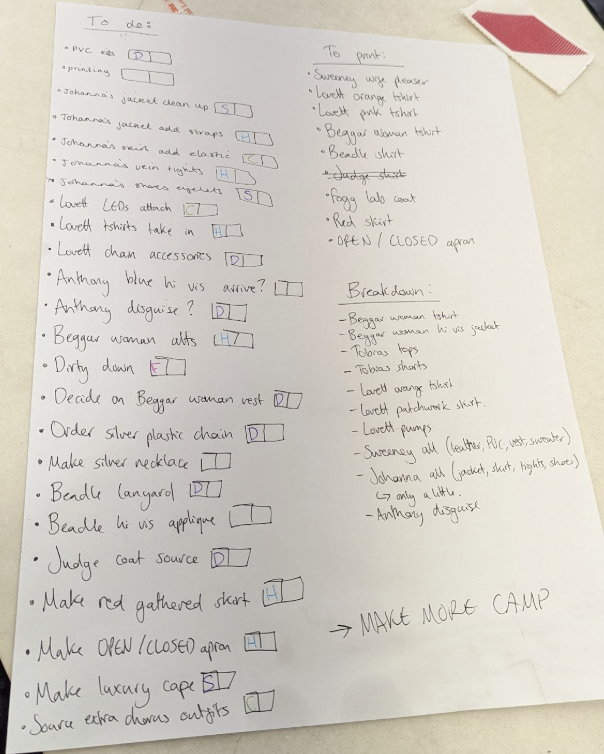 To do:
• PVC D
• printing
• Johanna's jacket clean up S
• Johanna's jacket add straps H
• Johanna's skirt add elastic C
• Johanna's vein tights H
• Johanna's shoes eyelets S
• Lovett LEDs attach C
• Lovett tshirts take in H
• Lovett chain accessories D
• Anthony blue hi vis arrive?
• Anthony disguise? D
• Beggar woman alts H
• Dirty down E
• Decide on Beggar woman vest D
• Order silver plastic chain D
• Make silver necklace
• Beadle lanyard D
• Beadle hi vis applique
• Judge coat source D
• Make red gathered skirt H
• Make OPEN/CLOSED apron H
• Make luxury cape S
• Source extra chorus outfits C
To print:
• Sweeney wife pleaser
• Lovett orange tshirt
• Lovett pink tshirt
• Beggar woman tshirt
• Beadle shirt
• Judge shirt
• Fogg lab coat
• Red skirt
• OPEN / CLOSED apron
Breakdown:
- Beggar woman tshirt
- Beggar woman hi vis jacket
- Tobias tops
- Tobias shorts
- Lovett orange tshirt
- Lovett patchwork skirt.
- Lovett pumps
- Sweeney all (leather, PVC, vest, sweater)
- Johanna all (jacket, skirt, tights, shoes)
↳ only a little.
- Anthony disguise
→ MAKE MORE CAMP